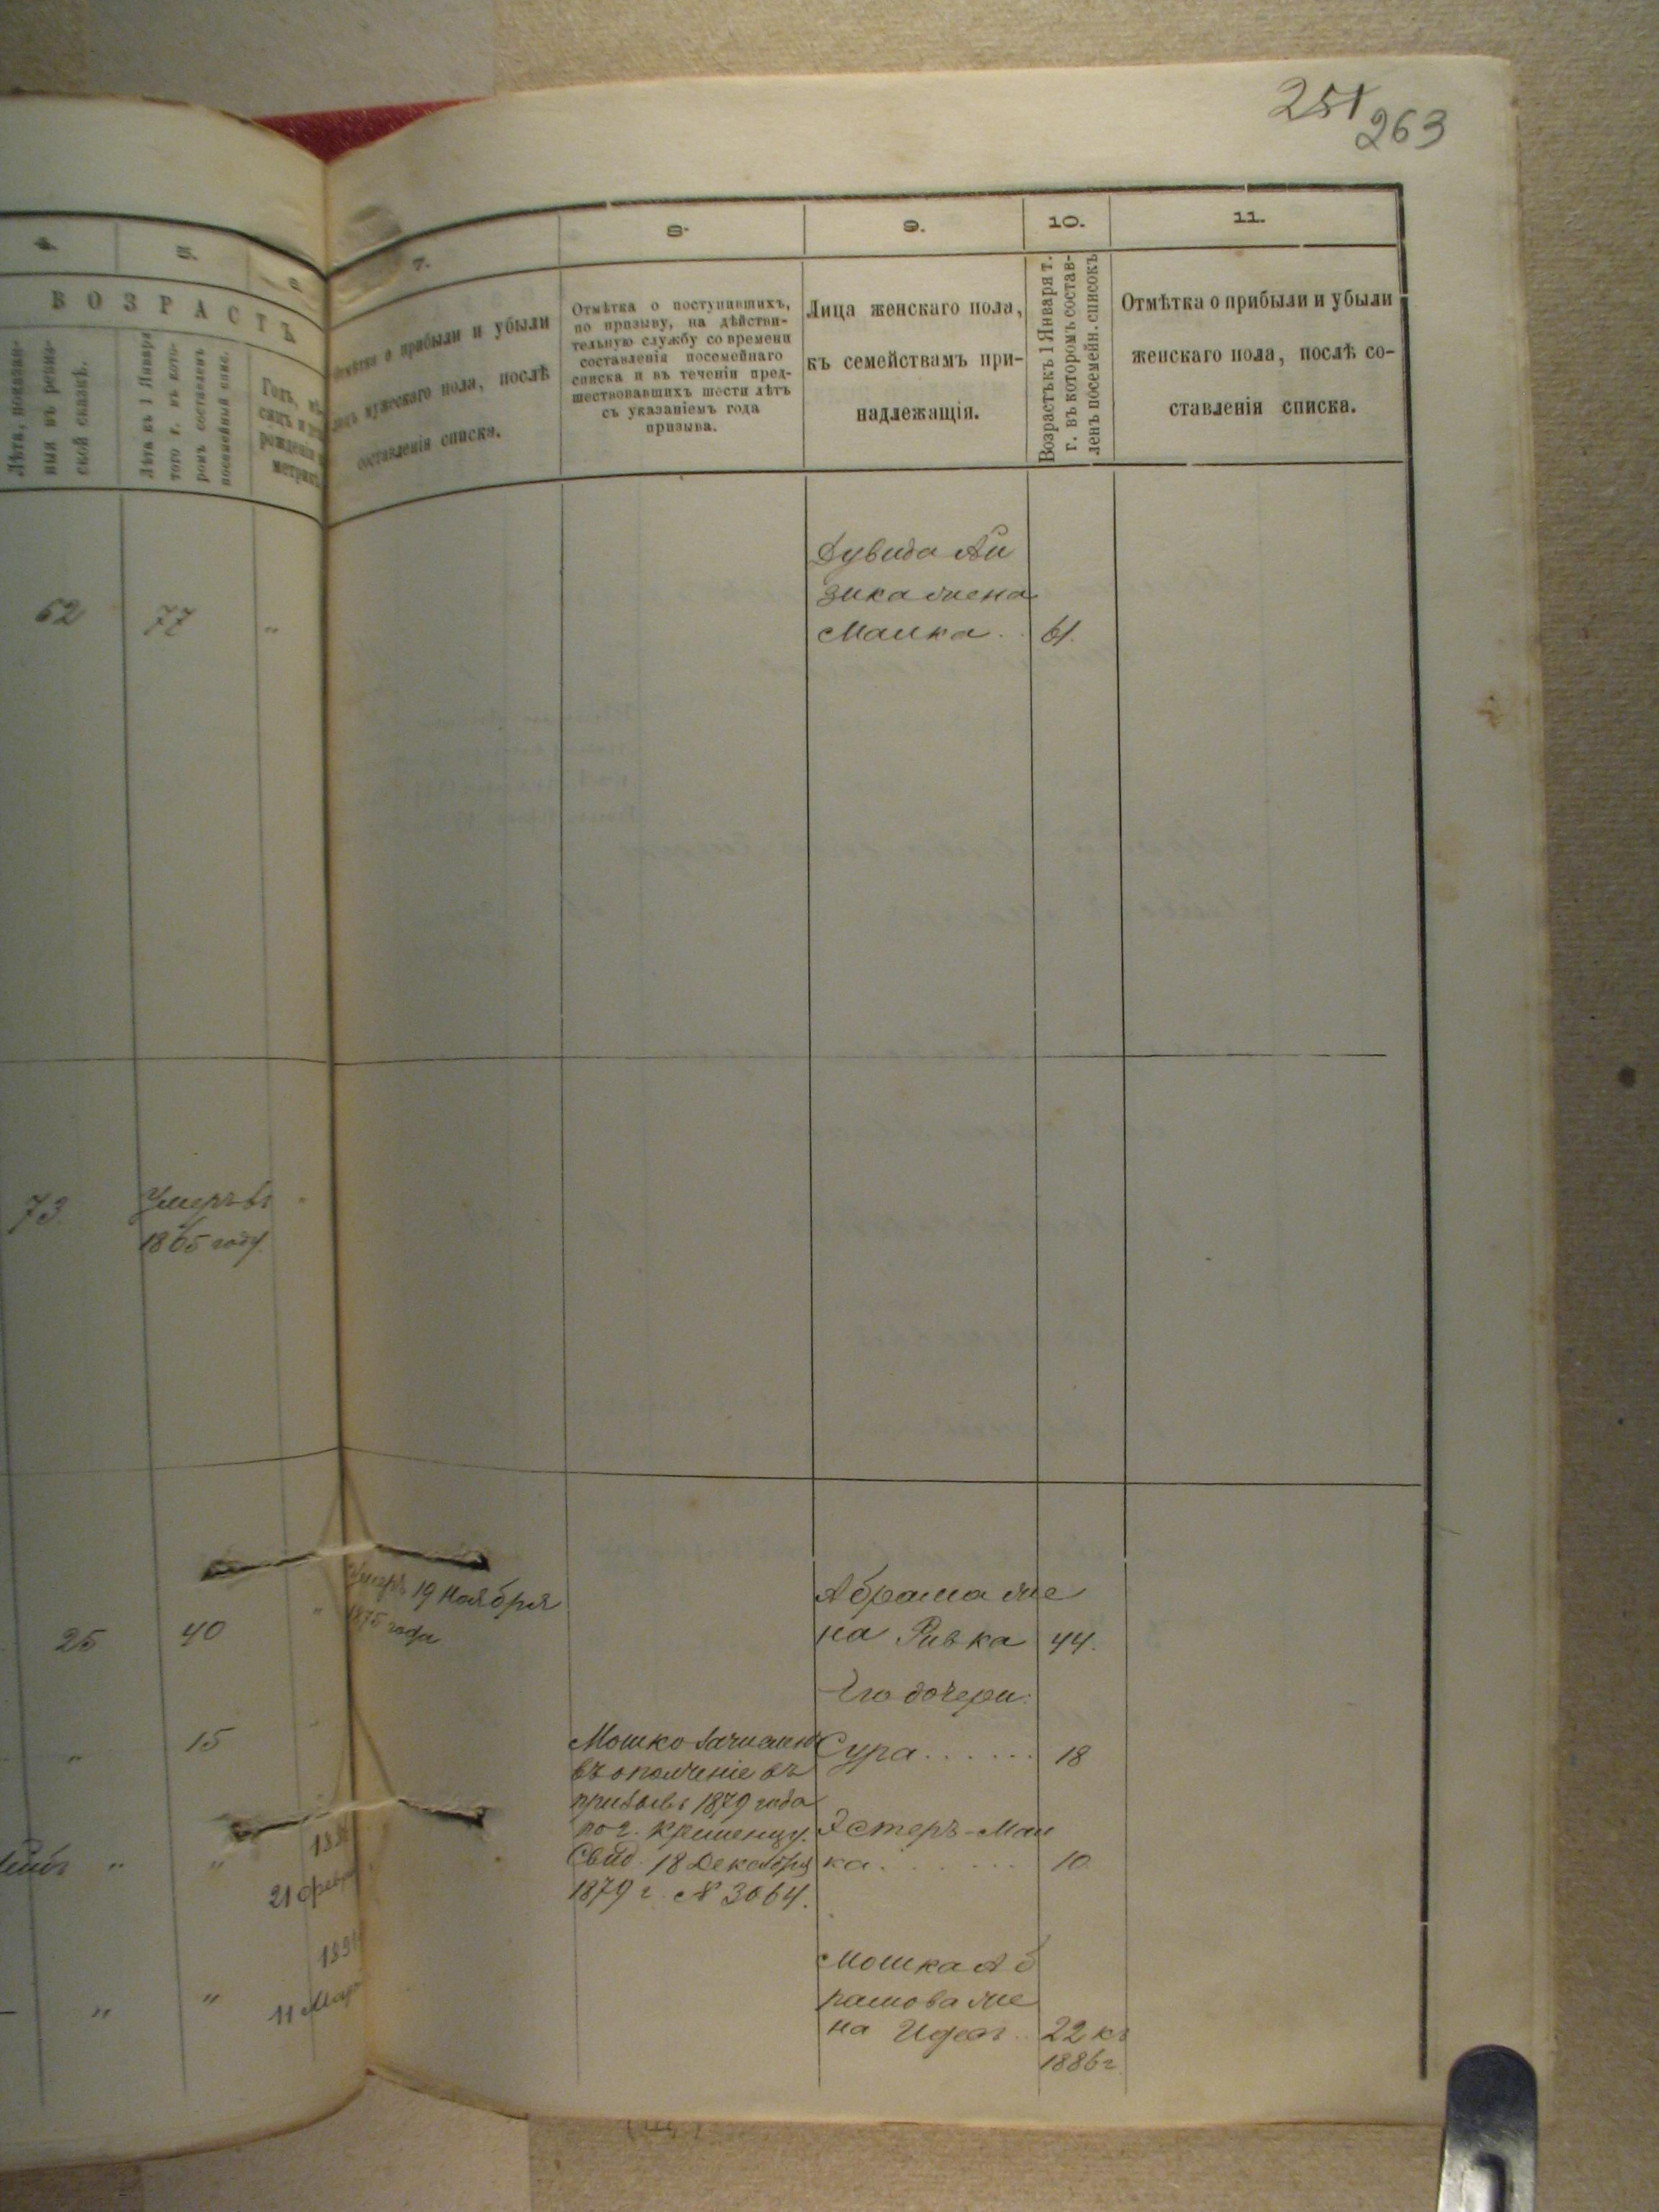 251
263
4.
5.
6.
7.
8.
9.
10.
11.
ВОЗРАСТЪ
Лѣта, показан-
ныя въ ревиз-
ской сказкѣ.
Лѣта къ 1 Января
того г. въ кото-
ромъ составленъ
посемейный спис.
Годъ, мѣ-
сяцъ и
рожденія
метрик
о прибыли и убыли
мужескаго пола, послѣ
составленія списка.
Отмѣтка о поступившихъ,
по призыву, на дѣйстви-
тельную службу со времени
составленія посемейнаго
списка и въ теченіи пред-
шествовавшихъ шести лѣтъ
съ указаніемъ года
призыва.
Лица женскаго пола,
къ семействамъ при-
надлежащія.
Возрастъ къ 1 Января т.
г. въ которомъ состав-
ленъ посемейн. списокъ
Отмѣтка о прибыли и убыли
женскаго пола, послѣ со-
ставленія списка.
62
77
"
Дувида Ай
зика жена
Малка . . 61.
73
Умеръ въ
1865 году.
25
40
"
Умеръ 19 Ноября
1875 года
Абрама же
на Ривка 44.
Его дочери:
"
15
Мошко зачисленъ
въ ополченіе въ
призывъ 1879 года
по г. Кременцу.
Свид. 18 Декабря
1879 г. № 3064.
Сура . . . . . . 18
Эстеръ-Мал
ка . . . . . . 10.
"
"
21 февр
"
"
11 Мар
Мошка Аб
рамова же
на . . 22 къ
1886 г